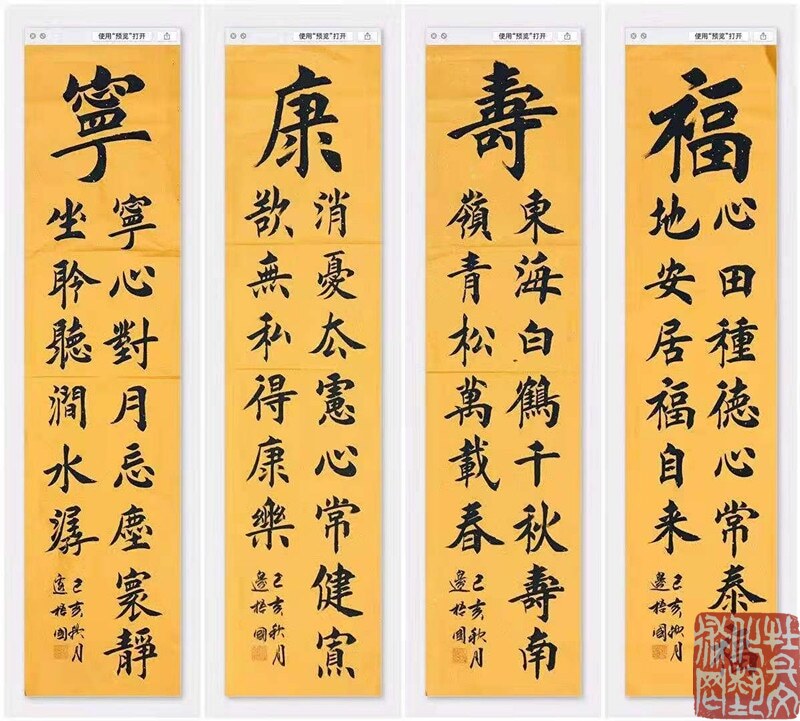 使用“预览”打开
福
心田種德心常泰福
地安居福自来
己亥秋月
使用“预览”打开
壽
東海白鶴千秋壽南
嶺青松萬載春
己亥秋月
使用“预览”打开
康
消憂去慮心常健寡
欲無私得康樂
己亥秋月
使用“预览”打开
寧
寧心對月忘塵寰靜
坐聆聽澗水潺
己亥秋月